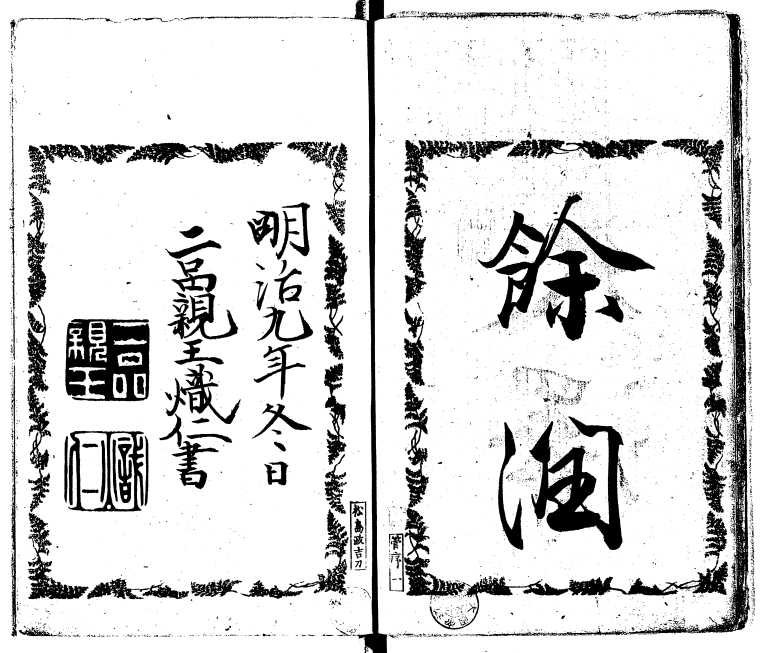 餘
潤
菅序一
明治九年冬日
二品親王熾仁書
二品
親王
熾
仁
松島政吉刀